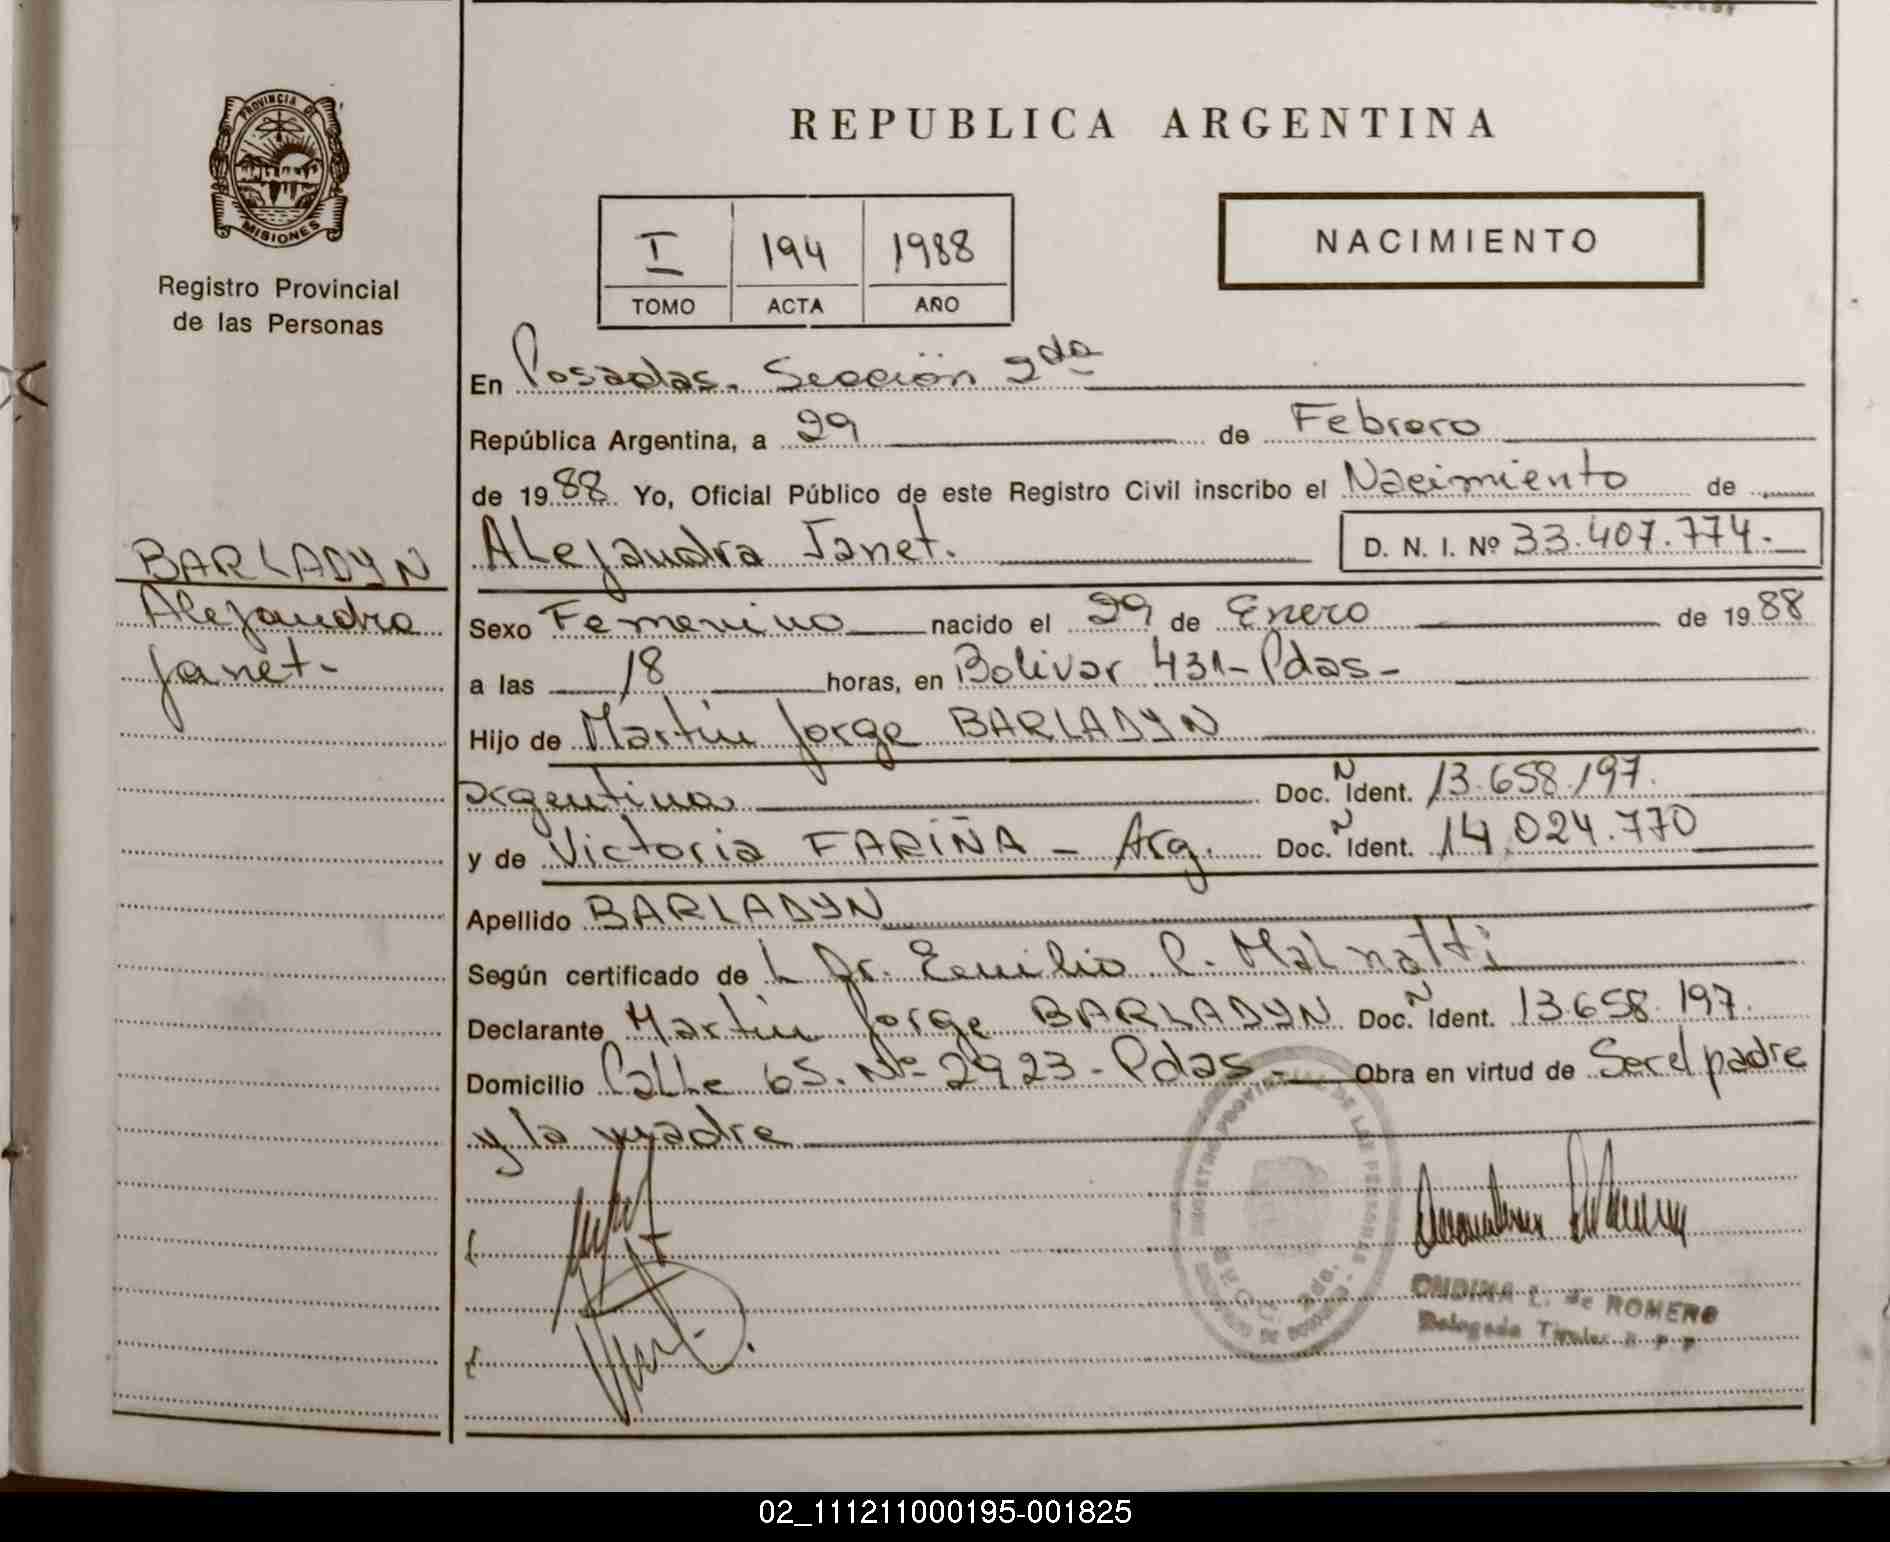 PROVINCIA DE
MISIONES
Registro Provincial
de las Personas
BARLADYN
Alejandra
Janet-
REPUBLICA ARGENTINA
I 194 1988
TOMO ACTA AÑO
NACIMIENTO
En Posadas. Sección 2da
República Argentina, a 29 de Febrero
de 1988 Yo, Oficial Público de este Registro Civil inscribo el Nacimiento de
Alejandra Janet. D. N. I. Nº 33.407.774.-
Sexo Femenino nacido el 29 de Enero de 1988
a las 18 horas, en Bolivar 431-Pdas-
Hijo de Martín Jorge BARLADYN
argentino Doc. N Ident. 13.658.197.
y de Victoria FARIÑA - Arg. Doc. N Ident. 14.024.770
Apellido BARLADYN
Según certificado de L Dr. Emilio R. Malnatti
Declarante Martín Jorge BARLADYN Doc. N Ident. 13.658.197.
Domicilio Calle 65. Nº 2923-Pdas.- Obra en virtud de Ser el padre
y la madre
ONDINA L. de ROMERO
Delegada Titular R. P. P
02_111211000195-001825